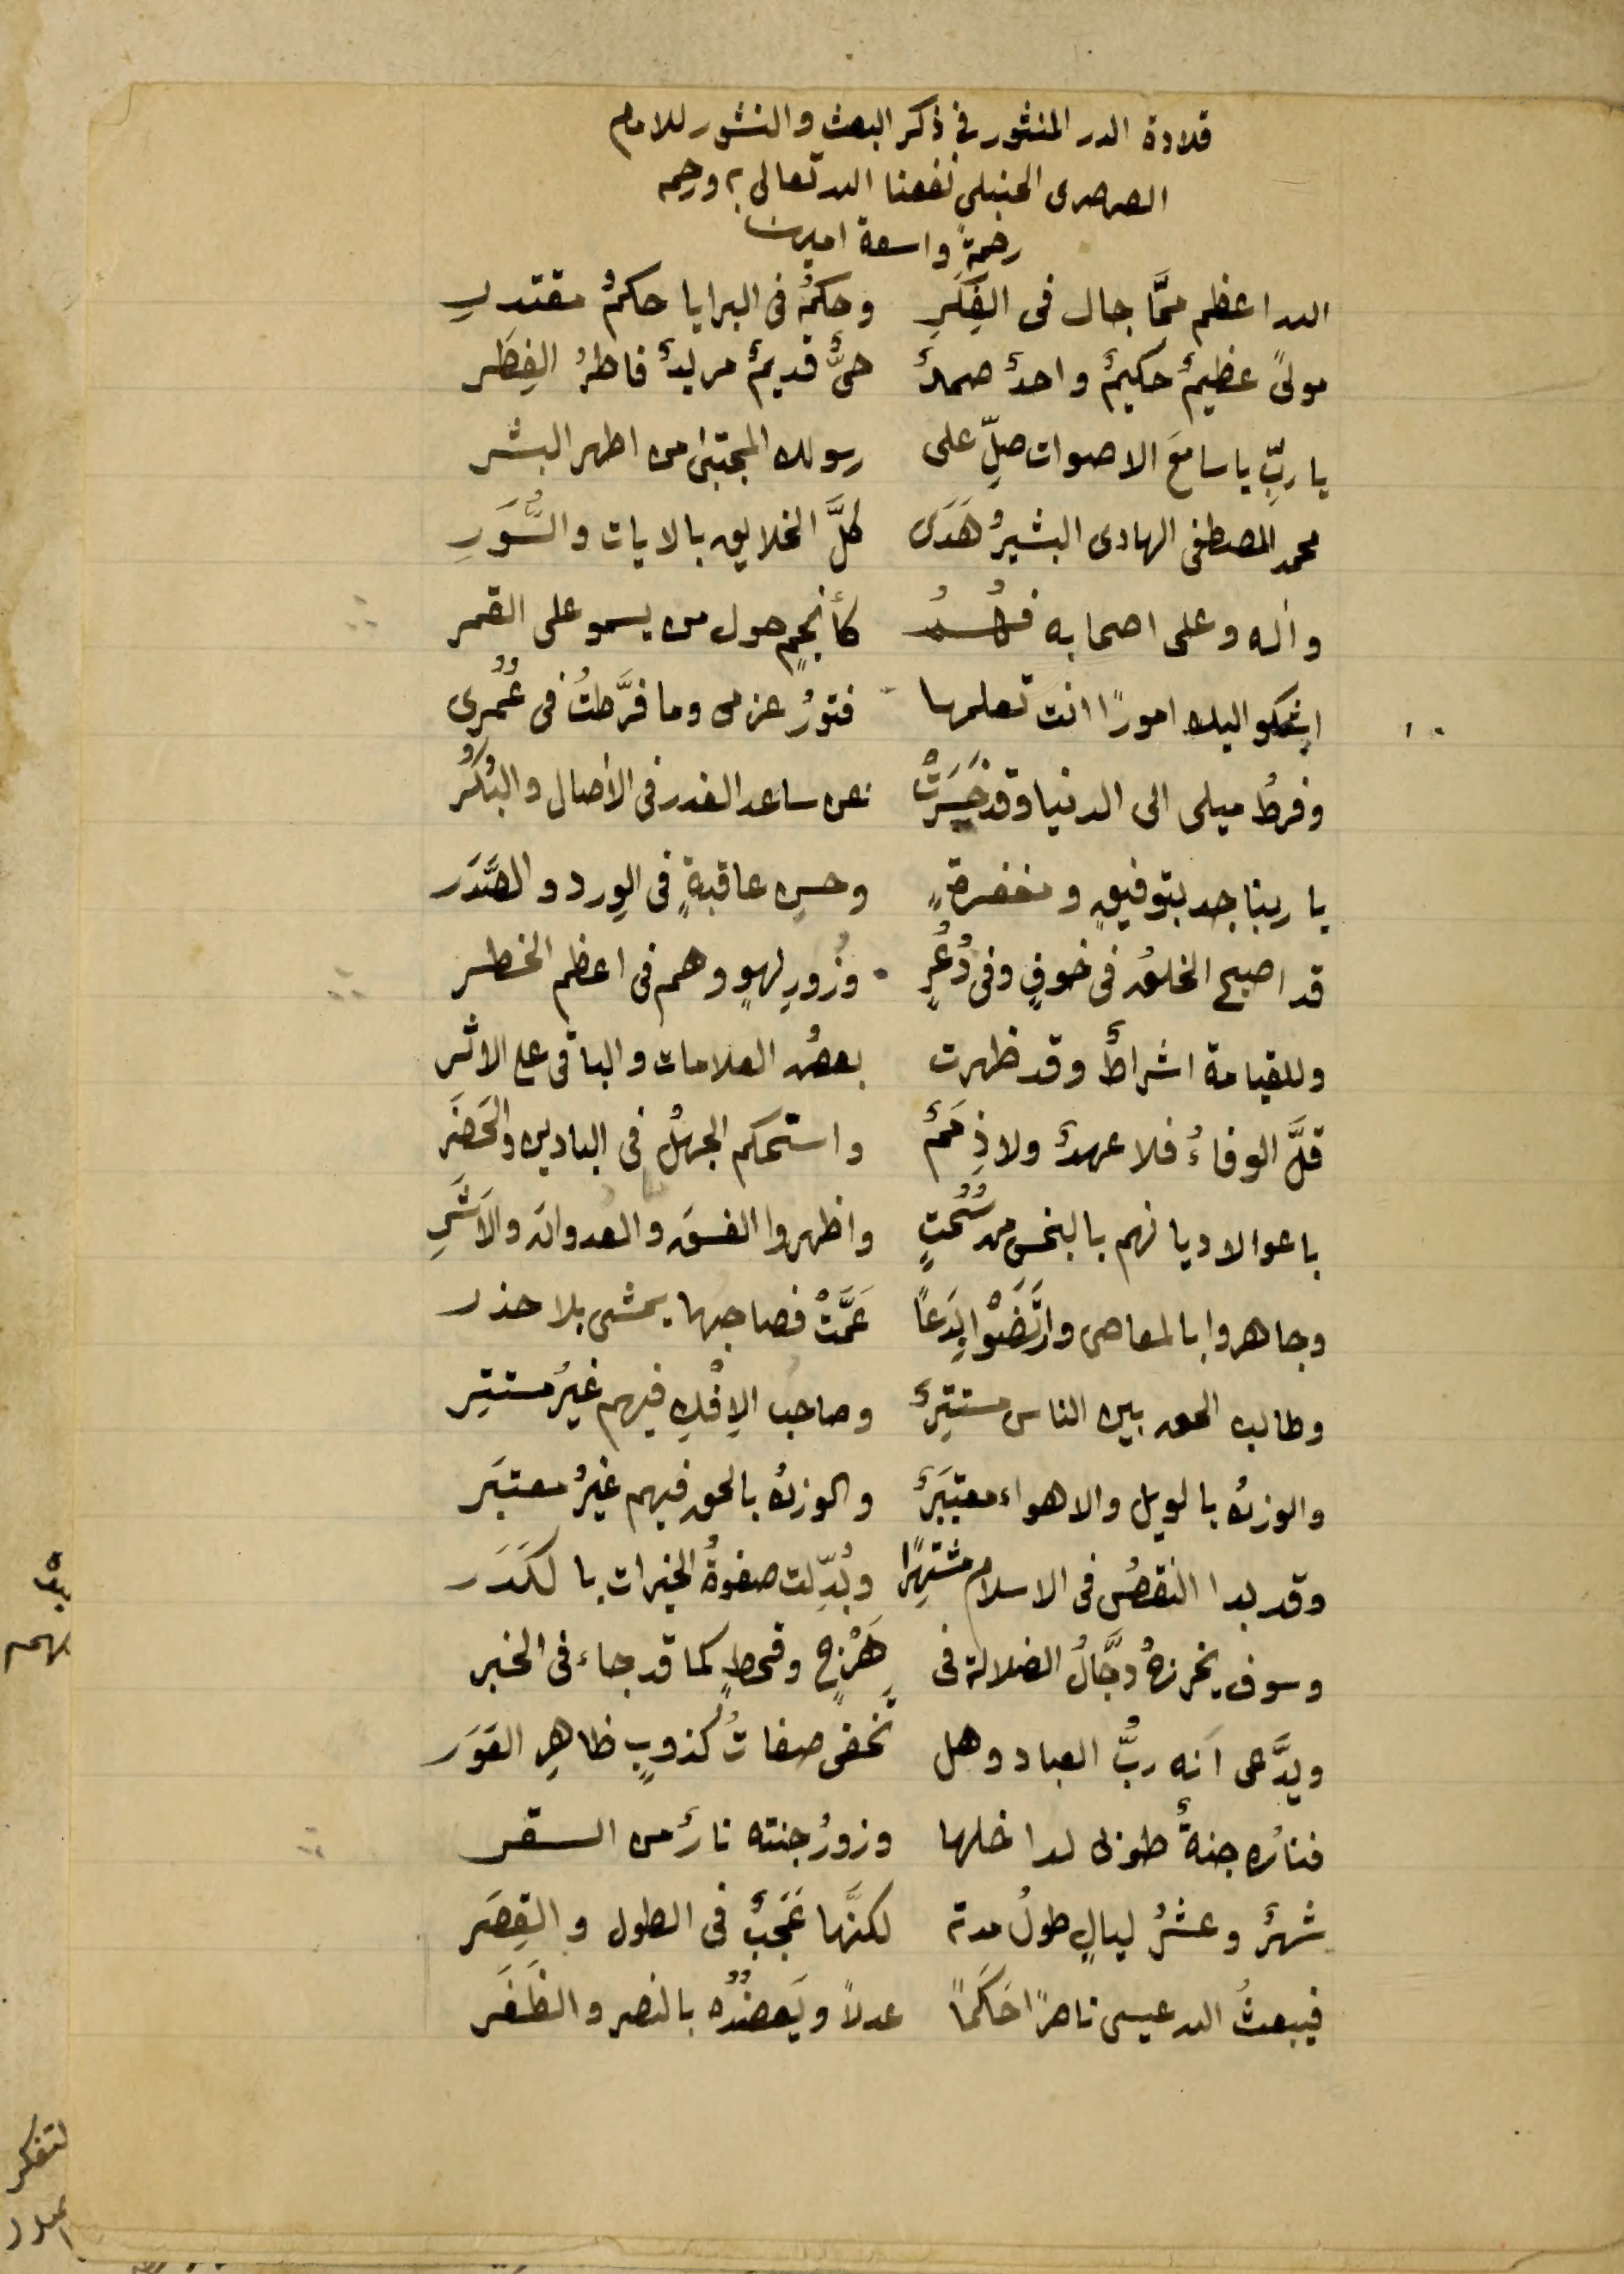 قلادة الدر المنثور في ذكر البعث والنشور للامام
الصرصرى الحنبلي نفعنا الله تعالى به ورحمه
رحمةً واسعة امين
الله اعظم ممَّا جال فى الفِكَرِ وحكمُهُ فى البرايا حكمُ مقتدرِ
مولىً عظيمٌ حكيمٌ واحدٌ صمدٌ حىٌّ قديمٌ مريدٌ فاطرُ الفِطَر
يا ربِّ يا سامعَ الاصوات صلِّ على رسولك المجتبىٰ من اطهر البشر
محمد المصطفى الهادى البشيرُ هَدَى كلَّ الخلايق بالايات والسُّوَرِ
واله وعلى اصحابه فهُمُ كأنجمٍ حول من يسمو على القمر
اشكو اليك امورًا انت تعلمها فتورُ عزمى وما فرَّطتُ فى عُمُرى
وفرطُ ميلى الى الدنيا وقد حَسَرَتْ عن ساعد الغدر فى الأصال والبُكُر
يا ربنا جد بتوفيقٍ ومغفرةٍ وحسنِ عاقبةٍ فى الوِرد والصَّدَر
قد اصبح الخلقُ فى خوفٍ وفى ذُعُرٍ وزُورِ لهوٍ وهم فى اعظم الخطر
وللقيامة اشراطٌ وقد ظهرت بعضُ العلامات والباقى على الاثر
قلَّ الوفاءُ فلا عهدٌ ولا ذِممٌ واستحكم الجهلُ فى البادين والحَضَر
باعوا لاديانهم بالبخس من سُحُتٍ واظهروا الفسقَ والعدوانَ والاَشَرِ
وجاهروا بالمعاصى وارتَضَوْا بِدَعًا عَمَّتْ فصاحبها يمشى بلا حذر
وطالب الحق بين الناس مستتِرٌ وصاحبُ الإِفْكِ فيهم غيرُ مستتِر
والوزنُ بالويل والاهواء معتبَرٌ والوزنُ بالحق فيهم غيرُ معتبَر
وقد بدا النقصُ فى الاسلام مشتهِرًا وبُدِّلت صفوةُ الخيرات بالكَدَر
وسوف يخرجُ دجَّالُ الضلالة فى هَرْجٍ وقحطٍ كما قد جاء فى الخبر
ويدَّعى أنه ربُّ العباد وهل تَخفى صفاتُ كذوبٍ ظاهرِ العَوَر
فناره جنةٌ طوبى لداخلها وزورُ جنته نارٌ من السقر
شهرٌ وعشرُ ليالٍ طولُ مدته لكنَّها عَجَبٌ فى الطول والقِصَر
فيبعثُ الله عيسى ناصرًا حَكَمًا عدلًا ويَعضُدُه بالنصر والظَفَر